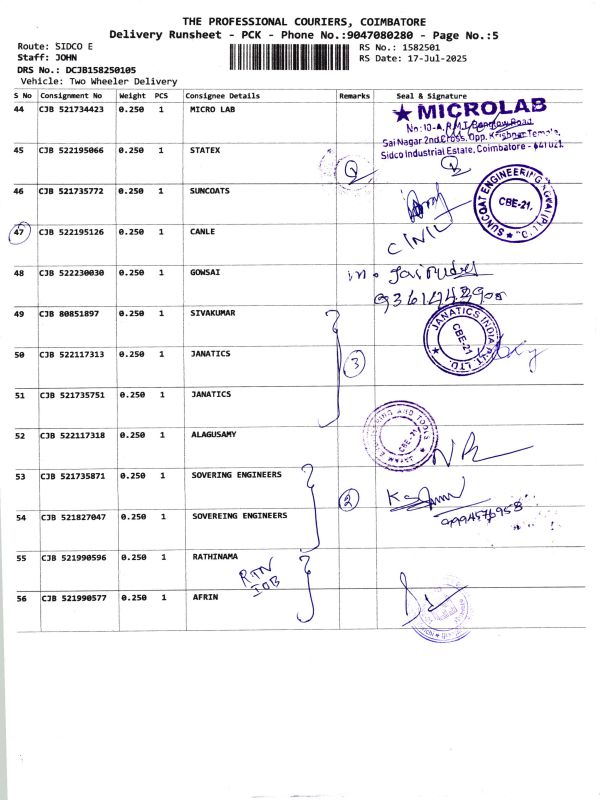 THE PROFESSIONAL COURIERS, COIMBATORE
Delivery Runsheet - PCK - Phone No.:9047080280 - Page No.:5
Route: SIDCO E
RS No.: 1582501
Staff: JOHN
RS Date: 17-Jul-2025
DRS No.: DCJB158250105
Vehicle: Two Wheeler Delivery
S No Consignment No Weight PCS Consignee Details Remarks Seal & Signature
44 CJB 521734423 0.250 1 MICRO LAB
★ MICROLAB
No:10-A, R.M.T. Bunglow Road
Sai Nagar 2nd Cross, Opp. Krishnar Temple,
Sidco Industrial Estate, Coimbatore - 641 021.
45 CJB 522195066 0.250 1 STATEX
46 CJB 521735772 0.250 1 SUNCOATS
SUNCOAT ENGINEERING
CBE-21.
47 CJB 522195126 0.250 1 CANLE
48 CJB 522230030 0.250 1 GOWSAI
49 CJB 80851897 0.250 1 SIVAKUMAR
JANATICS INDIA PVT. LTD. ★
CBE-21
50 CJB 522117313 0.250 1 JANATICS 3
51 CJB 521735751 0.250 1 JANATICS
52 CJB 522117318 0.250 1 ALAGUSAMY
AND TOOLS
CBE-21
53 CJB 521735871 0.250 1 SOVERING ENGINEERS
2
9994576958
54 CJB 521827047 0.250 1 SOVEREING ENGINEERS
55 CJB 521990596 0.250 1 RATHINAMA
RTN
IOB
56 CJB 521990577 0.250 1 AFRIN